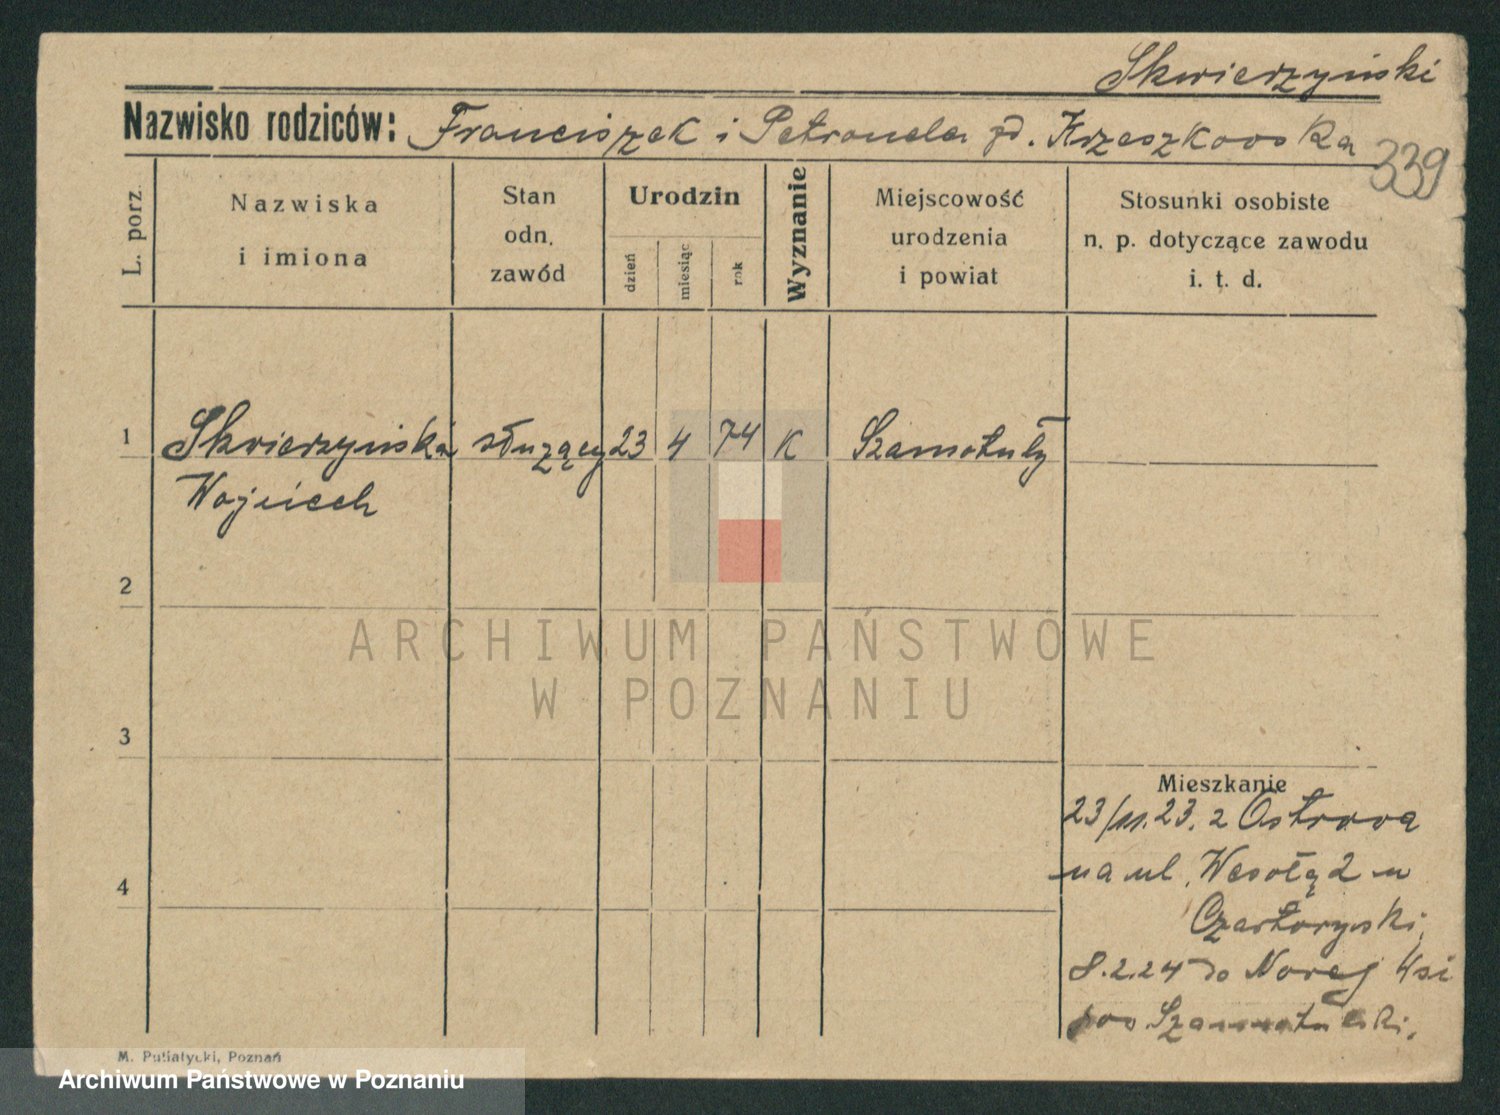 Skwierzyński
Nazwisko rodziców: Franciszek i Petronela zd. Krzeszkowska
339
L. porz
Nazwiska
i imiona
Stan
odn.
zawód
Urodzin
dzień
miesiąc
rok
Wyznanie
Miejscowość
urodzenia
i powiat
Stosunki osobiste
n. p. dotyczące zawodu
i. t. d.
1 Skwierzyński służący 23 4 74 K Szamotuły
Wojciech
2
ARCHIWUM PAŃSTWOWE
W POZNANIU
3
Mieszkanie
23/11.23. z Ostrowa
na ul. Wesołą 2 u
4
Czartoryski,
8.2.24 do Nowej Wsi
pow Szamotulski.
M. Putiatycki, Poznań
Archiwum Państwowe w Poznaniu